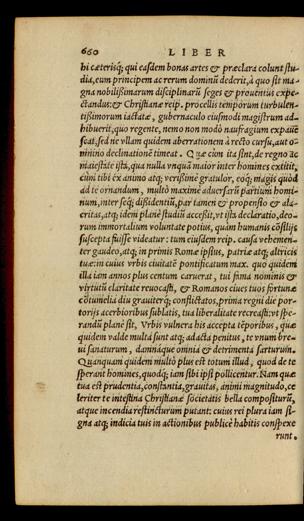 660 LIBER
hi cæterisq́; qui easdem bonas artes & præclara colunt stu-
dia, eum principem ac rerum dominū dederit, à quo sit ma-
gna nobilißimarum disciplinarū seges & prouentus expe-
ctandus: & Christianæ reip. procellis temporum turbulen-
tißimorum iactatæ, gubernaculo eiusmodi magistrum ad-
hibuerit, quo regente, nemo non modò naufragium expaue
scat, sed ne vllam quidem aberrationem à recto cursu, aut o-
mnino declinationē timeat. Quæ cùm ita sint, de regno ac
maiestate ista, qua nulla vnquā maior inter homines extitit,
cùm tibi ex animo atq; verißimè gratulor, eoq́; magis quòd
ad te ornandum, multò maximè aduersarū partium homi-
num, inter seq́; dißidentiū, par tamen & propensio & ala-
critas, atq; idem planè studiū acceßit, vt ista declaratio, deo-
rum immortalium voluntate potius, quàm humanis cōsilijs
suscepta fuisse videatur: tum eiusdem reip. causa vehemen-
ter gaudeo, atq; in primis Romæ ipsius, patriæ atq; altricis
tuæ: in cuius vrbis ciuitatē pontificatum max. quo quidem
illa iam annos plus centum caruerat, tui summa nominis &
virtutū claritate reuocasti, & Romanos ciues tuos fortunæ
cōtumelia diu grauiterq́; conflictatos, prima regni die por-
torijs acerbioribus sublatis, tua liberalitate recreasti: vt spe-
randū planè sit, Vrbis vulnera his accepta tēporibus, quæ
quidem valde multa sunt atq; adacta penitus, te vnum bre-
ui sanaturum, damnáque omnia & detrimenta sarturum.
Quanquam quidem multò plus est totum illud, quod de te
sperant homines, quodq́; iam sibi ipsi pollicentur. Nam quæ
tua est prudentia, constantia, grauitas, animi magnitudo, ce
leriter te intestina Christianæ societatis bella compositurū,
atque incendia restincturum putant: cuius rei plura iam si-
gna atq; indicia tuis in actionibus publicè habitis conspexe
runt.